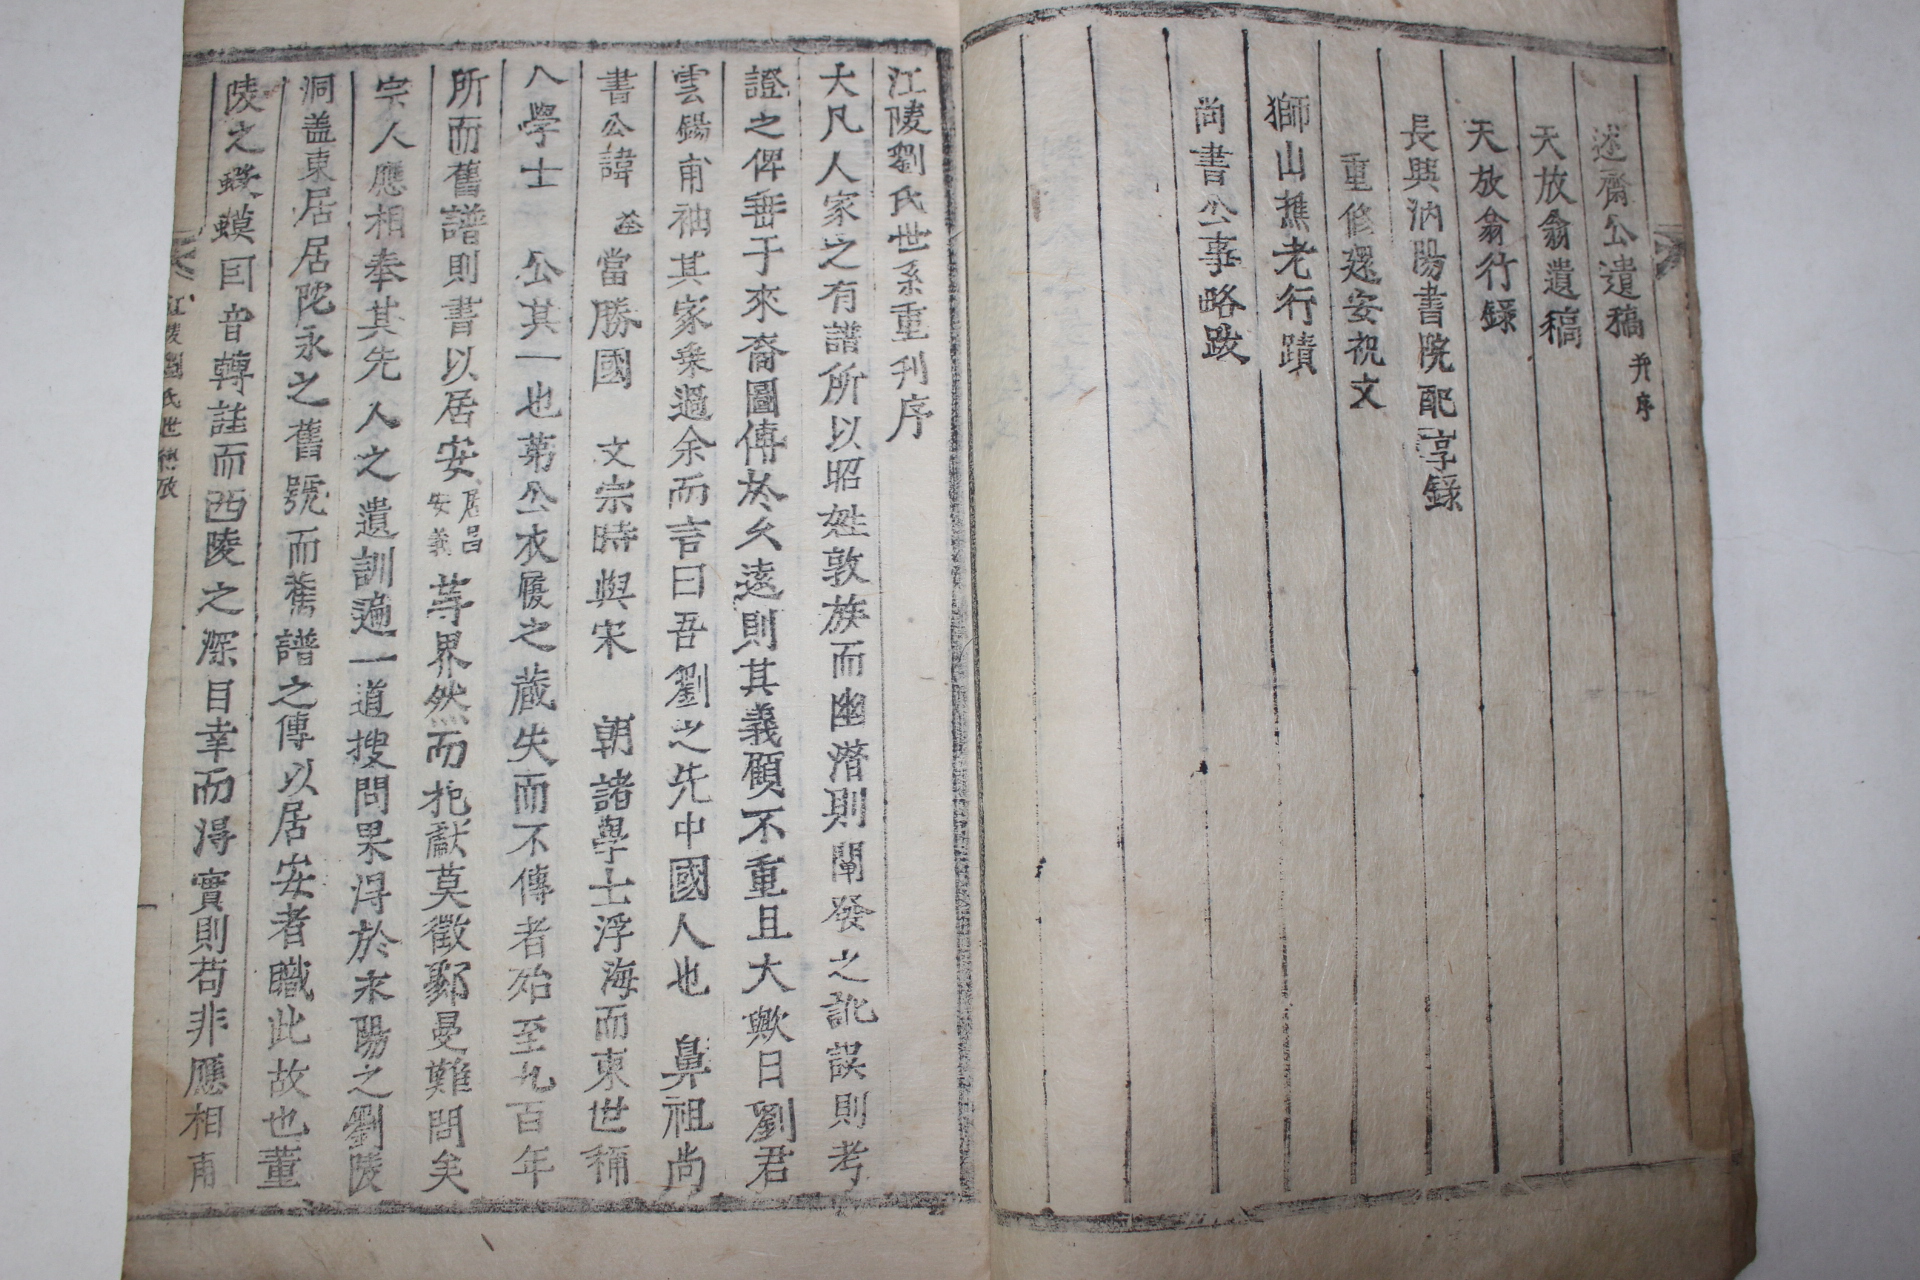 述齋公遺稿 并序
天放翁遺稿
天放翁行錄
長興汭陽書院配享錄
重修還安祝文
獅山樵老行蹟
尚書公事略跋
江陵劉氏世系重刊序
大凡人家之有譜所以昭姓敦族而幽潛則闡發之訛誤則考
證之俾垂于來裔圖傳於久遠則其義顧不重且大歟日劉君
雲錫甫袖其家乘過余而言曰吾劉之先中國人也 鼻祖尚
書公諱 荃 當勝國 文宗時與宋 朝諸學士浮海而東世稱
八學士 公其一也第公衣履之藏失而不傳者殆至九百年
所而舊譜則書以居安 居昌安義 等界然而杞獻莫徵郢曼難問矣
宗人應相奉其先人之遺訓遍一道搜問果淂於永陽之劉陵
洞盖東居居陀永之舊號而舊譜之傳以居安者職此故也董
陵之蝦蟆曰音轉註而西陵之深目幸而淂實則苟非應相甫
江陵劉氏世德攷